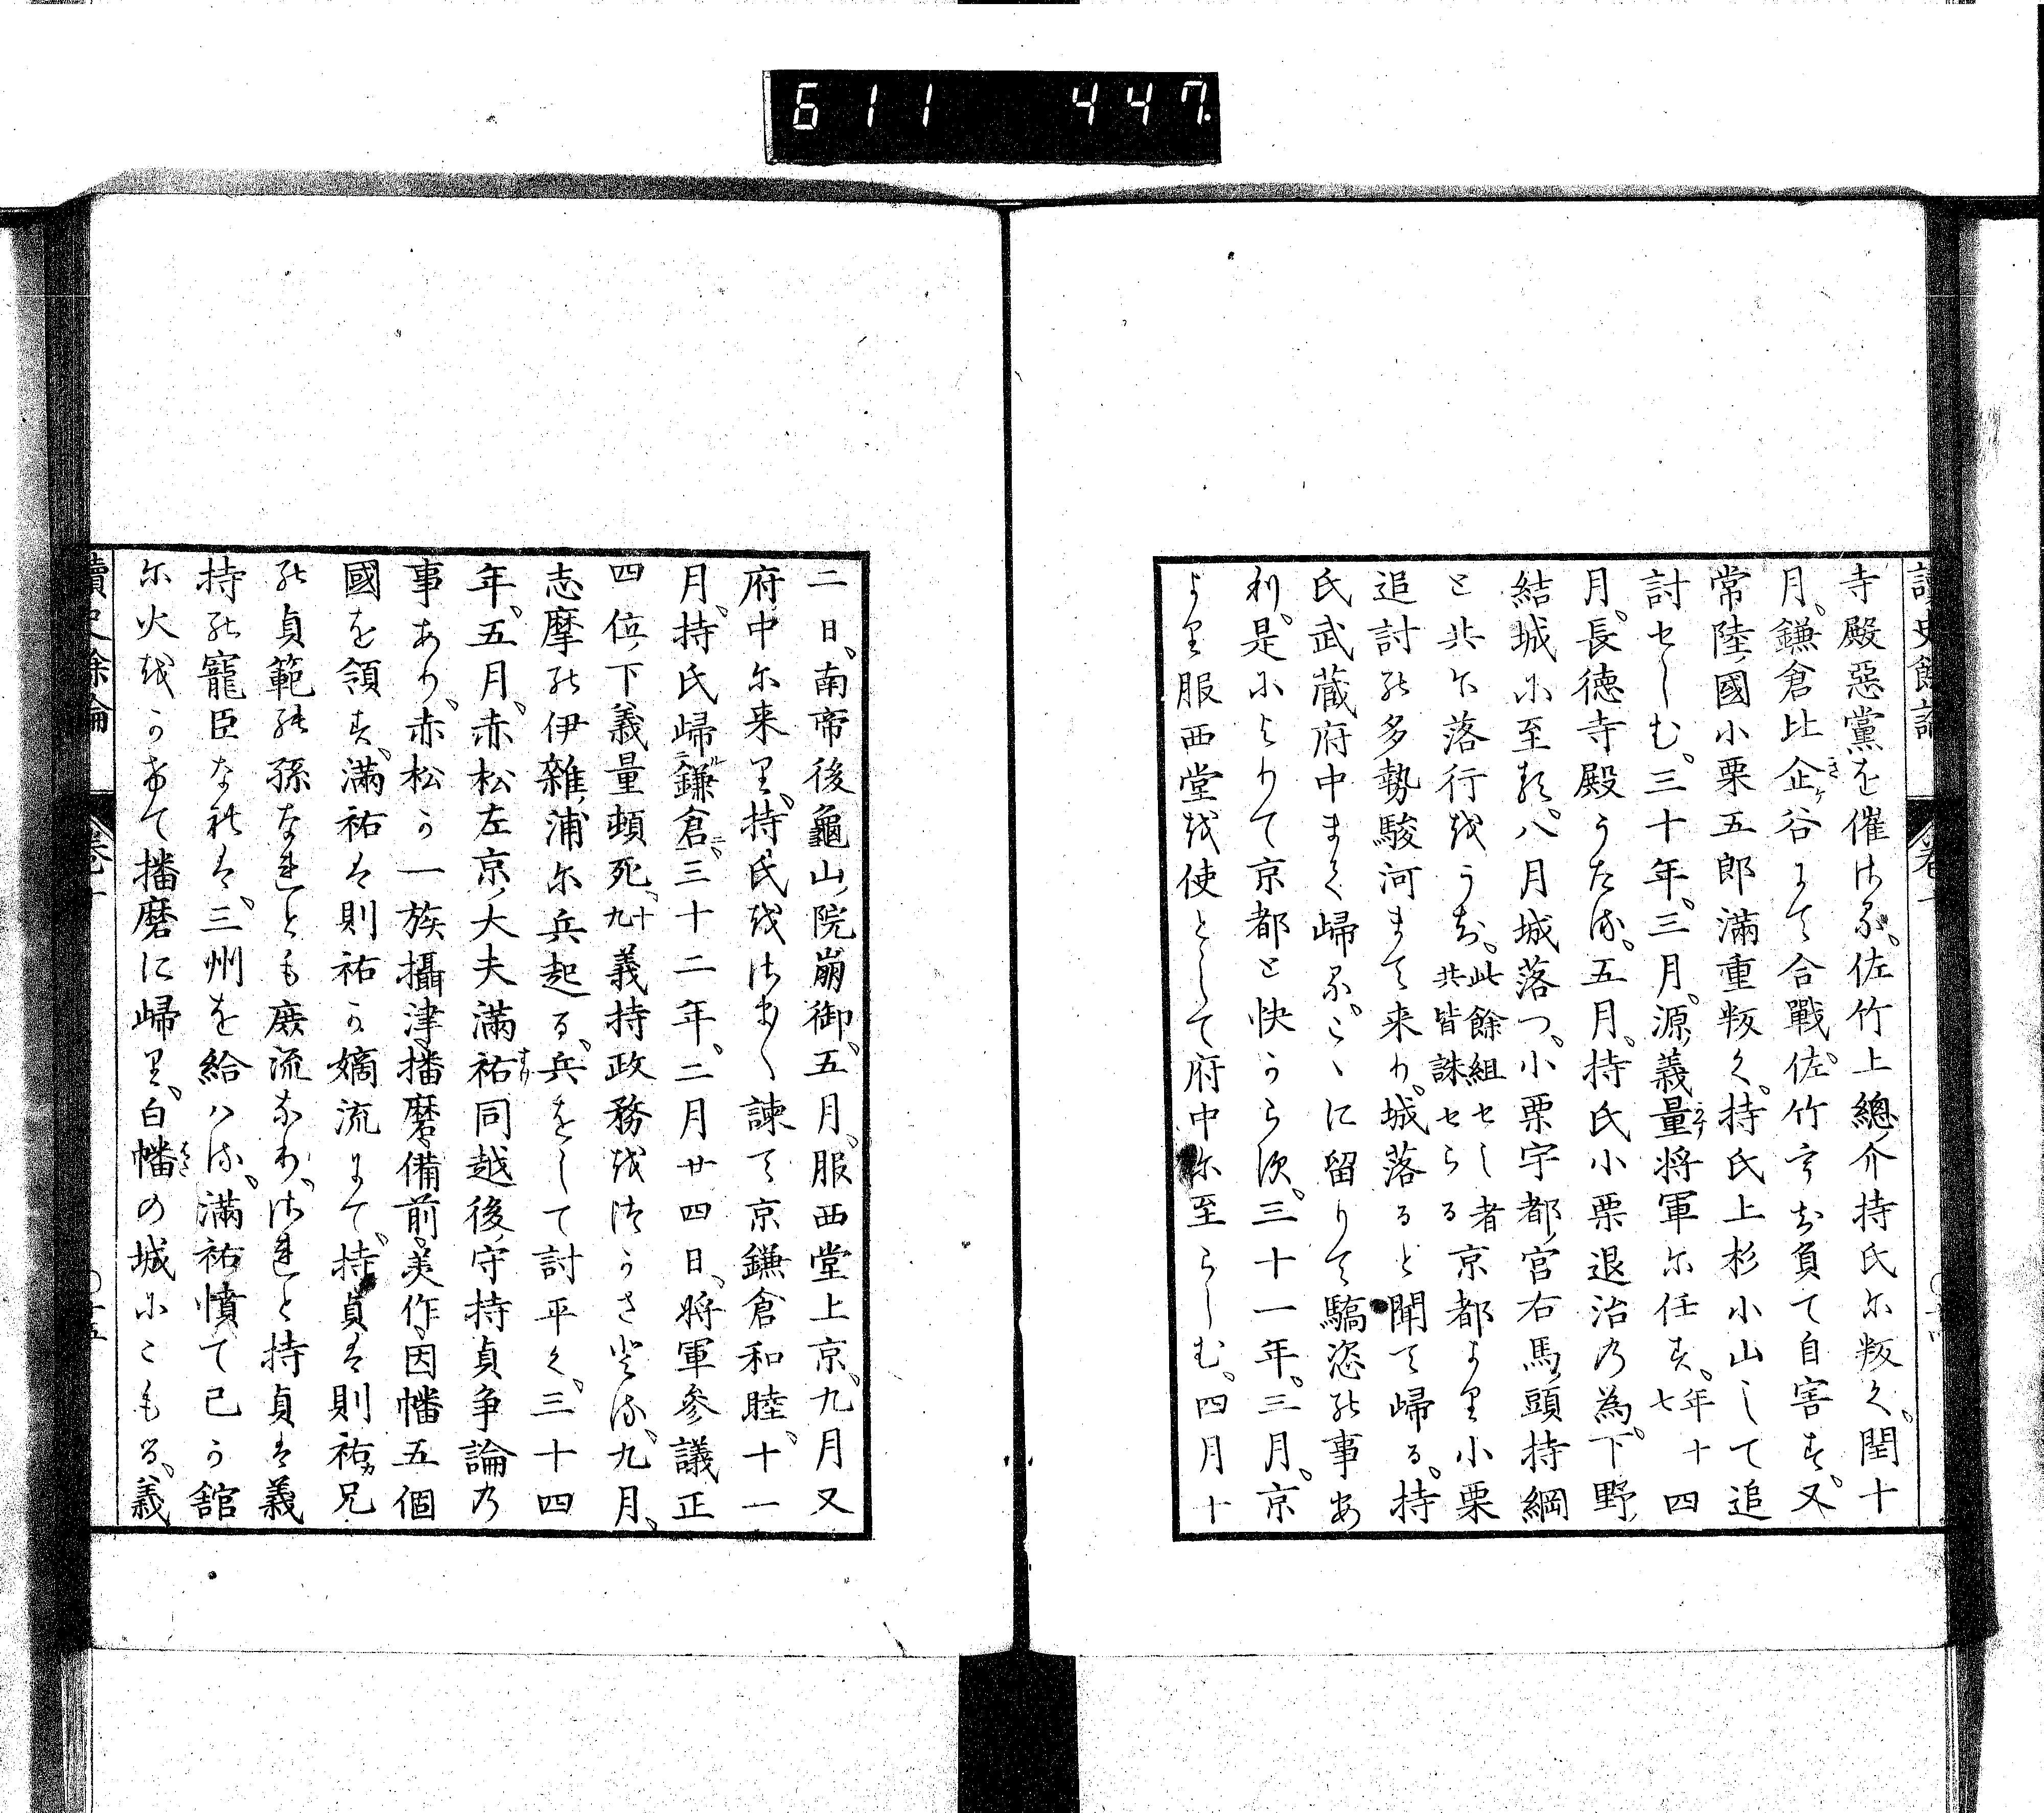 611 447.
讀史餘論 卷十
寺殿惡黨を催けるに佐竹上總ノ介持氏に叛く、閏十
月、鎌倉比企ケ谷にて合戰、佐竹うち負て自害す、又
常陸ノ國小栗五郎滿重叛く、持氏上杉小山して追
討せしむ、三十年、三月、源ノ義量將軍に任す、年十四七
月、長徳寺殿うたる、五月、持氏小栗退治の為、下野ノ
結城に至る、八月城落つ、小栗宇都ノ宮右馬ノ頭持綱
と共に落行をうつ、此餘組せし者共皆誅せらる京都より小栗
追討の多勢駿河まて来り、城落ると聞て歸る、持
氏武藏府中まて歸る、こゝに留りて驕恣の事あ
利、是によりて京都と快からす、三十一年、三月、京
より服西堂を使として府中に至らしむ、四月十
二日、南帝後龜山ノ院崩御、五月、服西堂上京、九月又
府中に来り、持氏をはけまし諫て京鎌倉和睦、十一
月、持氏歸ル鎌倉ニ、三十二年、二月廿四日、將軍參議正
四位ノ下義量頓死、十九義持政務をつかさとる、九月、
志摩の伊雜ノ浦に兵起る、兵をして討平く、三十四
年、五月、赤松左京ノ大夫滿祐同越後ノ守持貞争論の
事あり、赤松か一族攝津播磨備前美作因幡五個
國を領す、滿祐は則祐か嫡流にて、持貞は則祐カ兄
の貞範の孫なれとも庶流なり、されと持貞は義
持の寵臣なれは、三州を給ハる、滿祐憤て己か舘
に火をかけて播磨に歸り、白幡の城にこもる、義
讀史餘論 卷十 〇十五